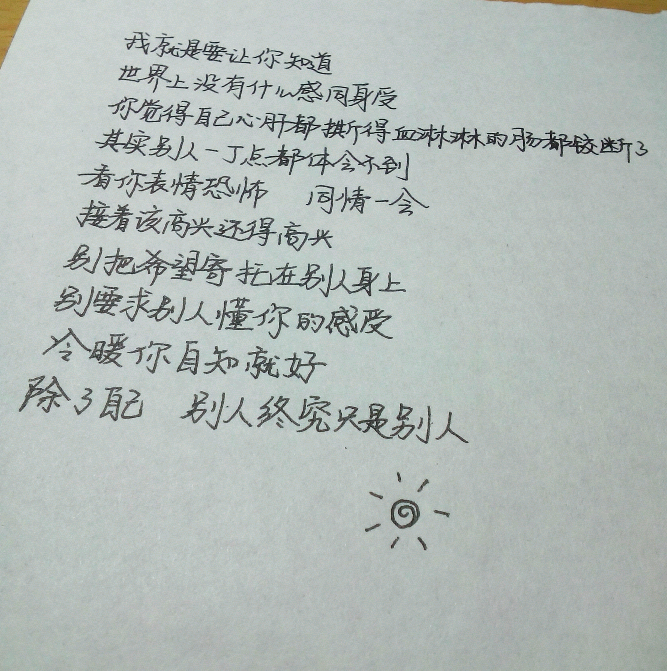 我就是要让你知道
世界上没有什么感同身受
你觉得自己心肝都撕得血淋淋的肠都绞断了
其实别人一丁点都体会不到
看你表情恐怖 同情一会
接着该高兴还得高兴
别把希望寄托在别人身上
别要求别人懂你的感受
冷暖你自知就好
除了自己 别人终究只是别人